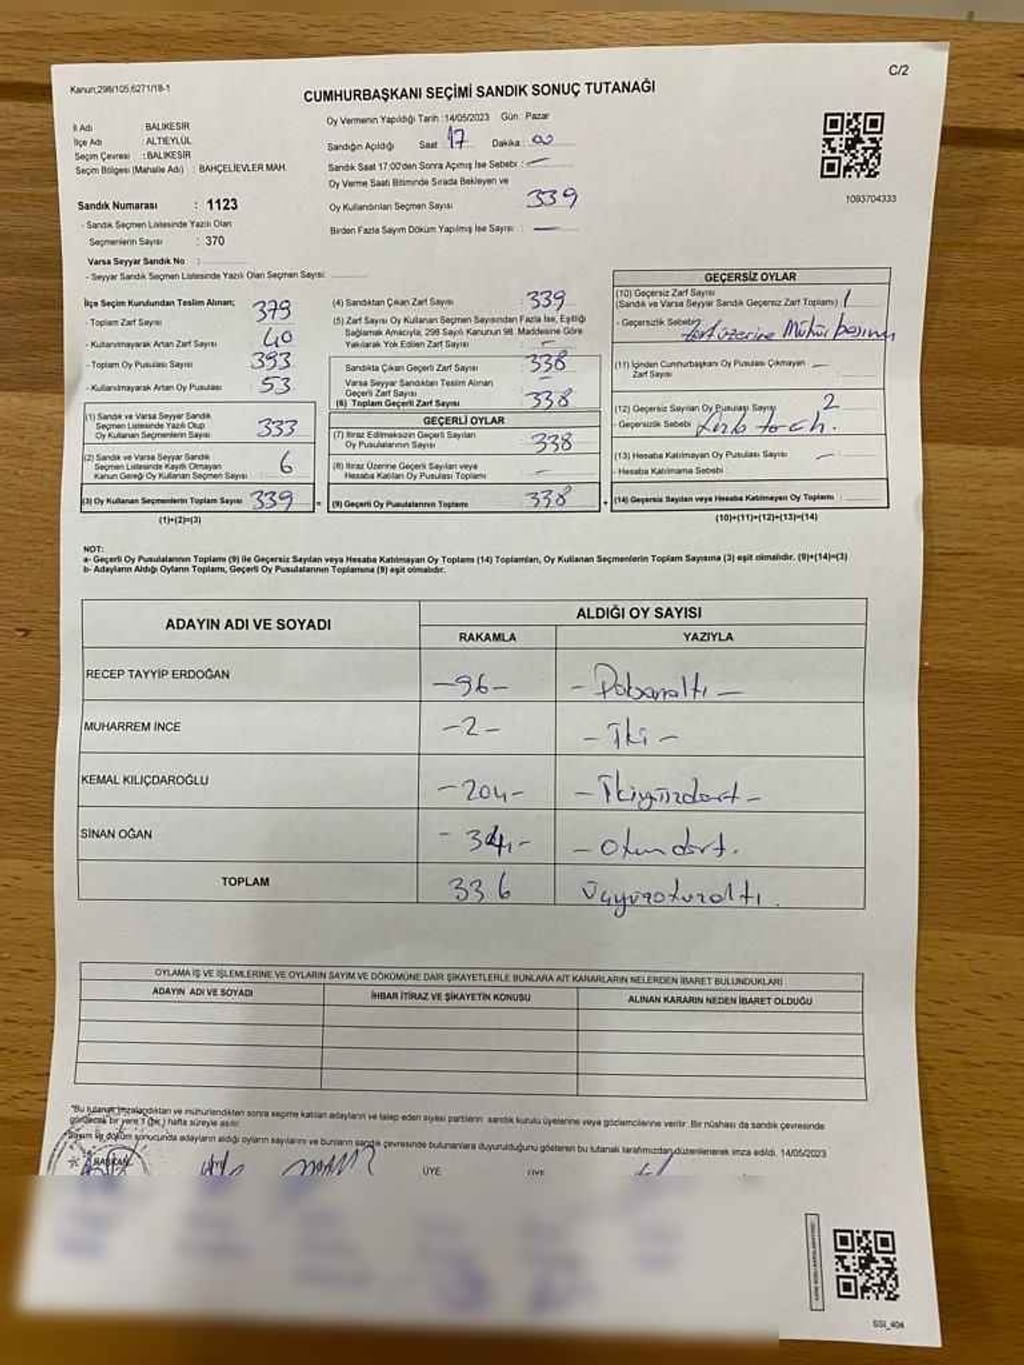 Kanun;298/105,6271/18-1
C/2
CUMHURBAŞKANI SEÇİMİ SANDIK SONUÇ TUTANAĞI
İl Adı : BALIKESİR
İlçe Adı : ALTIEYLÜL
Seçim Çevresi : BALIKESİR
Seçim Bölgesi (Mahalle Adı) : BAHÇELİEVLER MAH.
Sandık Numarası : 1123
- Sandık Seçmen Listesinde Yazılı Olan
Seçmenlerin Sayısı : 370
Varsa Seyyar Sandık No :
- Seyyar Sandık Seçmen Listesinde Yazılı Olan Seçmen Sayısı:
Oy Vermenin Yapıldığı Tarih : 14/05/2023 Gün : Pazar
Sandığın Açıldığı Saat 17 Dakika : 00
Sandık Saat 17:00'den Sonra Açılmış İse Sebebi : —
Oy Verme Saati Bitiminde Sırada Bekleyen ve
Oy Kullandırılan Seçmen Sayısı 339
Birden Fazla Sayım Döküm Yapılmış İse Sayısı : —
1093704333
İlçe Seçim Kurulundan Teslim Alınan;
- Toplam Zarf Sayısı 379
- Kullanılmayarak Artan Zarf Sayısı 40
- Toplam Oy Pusulası Sayısı 393
- Kullanılmayarak Artan Oy Pusulası 53
(1) Sandık ve Varsa Seyyar Sandık
Seçmen Listesinde Yazılı Olup
Oy Kullanan Seçmenlerin Sayısı 333
(2) Sandık ve Varsa Seyyar Sandık
Seçmen Listesinde Kayıtlı Olmayan
Kanun Gereği Oy Kullanan Seçmen Sayısı 6
(3) Oy Kullanan Seçmenlerin Toplam Sayısı 339
(1)+(2)=(3)
(4) Sandıktan Çıkan Zarf Sayısı : 339
(5) Zarf Sayısı Oy Kullanan Seçmen Sayısından Fazla İse, Eşitliği
Sağlamak Amacıyla, 298 Sayılı Kanunun 98. Maddesine Göre
Yakılarak Yok Edilen Zarf Sayısı : —
Sandıkta Çıkan Geçerli Zarf Sayısı 338
Varsa Seyyar Sandıktan Teslim Alınan
Geçerli Zarf Sayısı —
(6) Toplam Geçerli Zarf Sayısı 338
GEÇERLİ OYLAR
(7) İtiraz Edilmeksizin Geçerli Sayılan
Oy Pusulalarının Sayısı 338
(8) İtiraz Üzerine Geçerli Sayılan veya
Hesaba Katılan Oy Pusulası Toplamı —
(9) Geçerli Oy Pusulalarının Toplamı 338
GEÇERSİZ OYLAR
(10) Geçersiz Zarf Sayısı
(Sandık ve Varsa Seyyar Sandık Geçersiz Zarf Toplamı) 1
- Geçersizlik Sebebi zarf üzerine Mühür basımı
(11) İçinden Cumhurbaşkanı Oy Pusulası Çıkmayan
Zarf Sayısı —
(12) Geçersiz Sayılan Oy Pusulası Sayısı 2
- Geçersizlik Sebebi
(13) Hesaba Katılmayan Oy Pusulası Sayısı —
- Hesaba Katılmama Sebebi
(14) Geçersiz Sayılan veya Hesaba Katılmayan Oy Toplamı :
(10)+(11)+(12)+(13)=(14)
NOT:
a- Geçerli Oy Pusulalarının Toplamı (9) ile Geçersiz Sayılan veya Hesaba Katılmayan Oy Toplamı (14) Toplamları, Oy Kullanan Seçmenlerin Toplam Sayısına (3) eşit olmalıdır. (9)+(14)=(3)
b- Adayların Aldığı Oyların Toplamı, Geçerli Oy Pusulalarının Toplamına (9) eşit olmalıdır.
ADAYIN ADI VE SOYADI ALDIĞI OY SAYISI
RAKAMLA YAZIYLA
RECEP TAYYİP ERDOĞAN -96- - Doksanaltı -
MUHARREM İNCE -2- - İki -
KEMAL KILIÇDAROĞLU -204- - İkiyüzdört -
SİNAN OĞAN - 34 - - Otuzdört.
TOPLAM 336 Üçyüzotuzaltı.
OYLAMA İŞ VE İŞLEMLERİNE VE OYLARIN SAYIM VE DÖKÜMÜNE DAİR ŞİKAYETLERLE BUNLARA AİT KARARLARIN NELERDEN İBARET BULUNDUKLARI
ADAYIN ADI VE SOYADI İHBAR İTİRAZ VE ŞİKAYETİN KONUSU ALINAN KARARIN NEDEN İBARET OLDUĞU
"Bu tutanak imzalandıktan ve mühürlendikten sonra seçime katılan adayların ve talep eden siyasi partilerin sandık kurulu üyelerine veya gözlemcilerine verilir. Bir nüshası da sandık çevresinde
görülecek bir yere 1 (bir) hafta süreyle asılır.
Sayım ve döküm sonucunda adayların aldığı oyların sayılarını ve bunların sandık çevresinde bulunanlara duyurulduğunu gösteren bu tutanak tarafımızdan düzenlenerek imza edildi. 14/05/2023
BAŞKAN ÜYE ÜYE
SSI_404